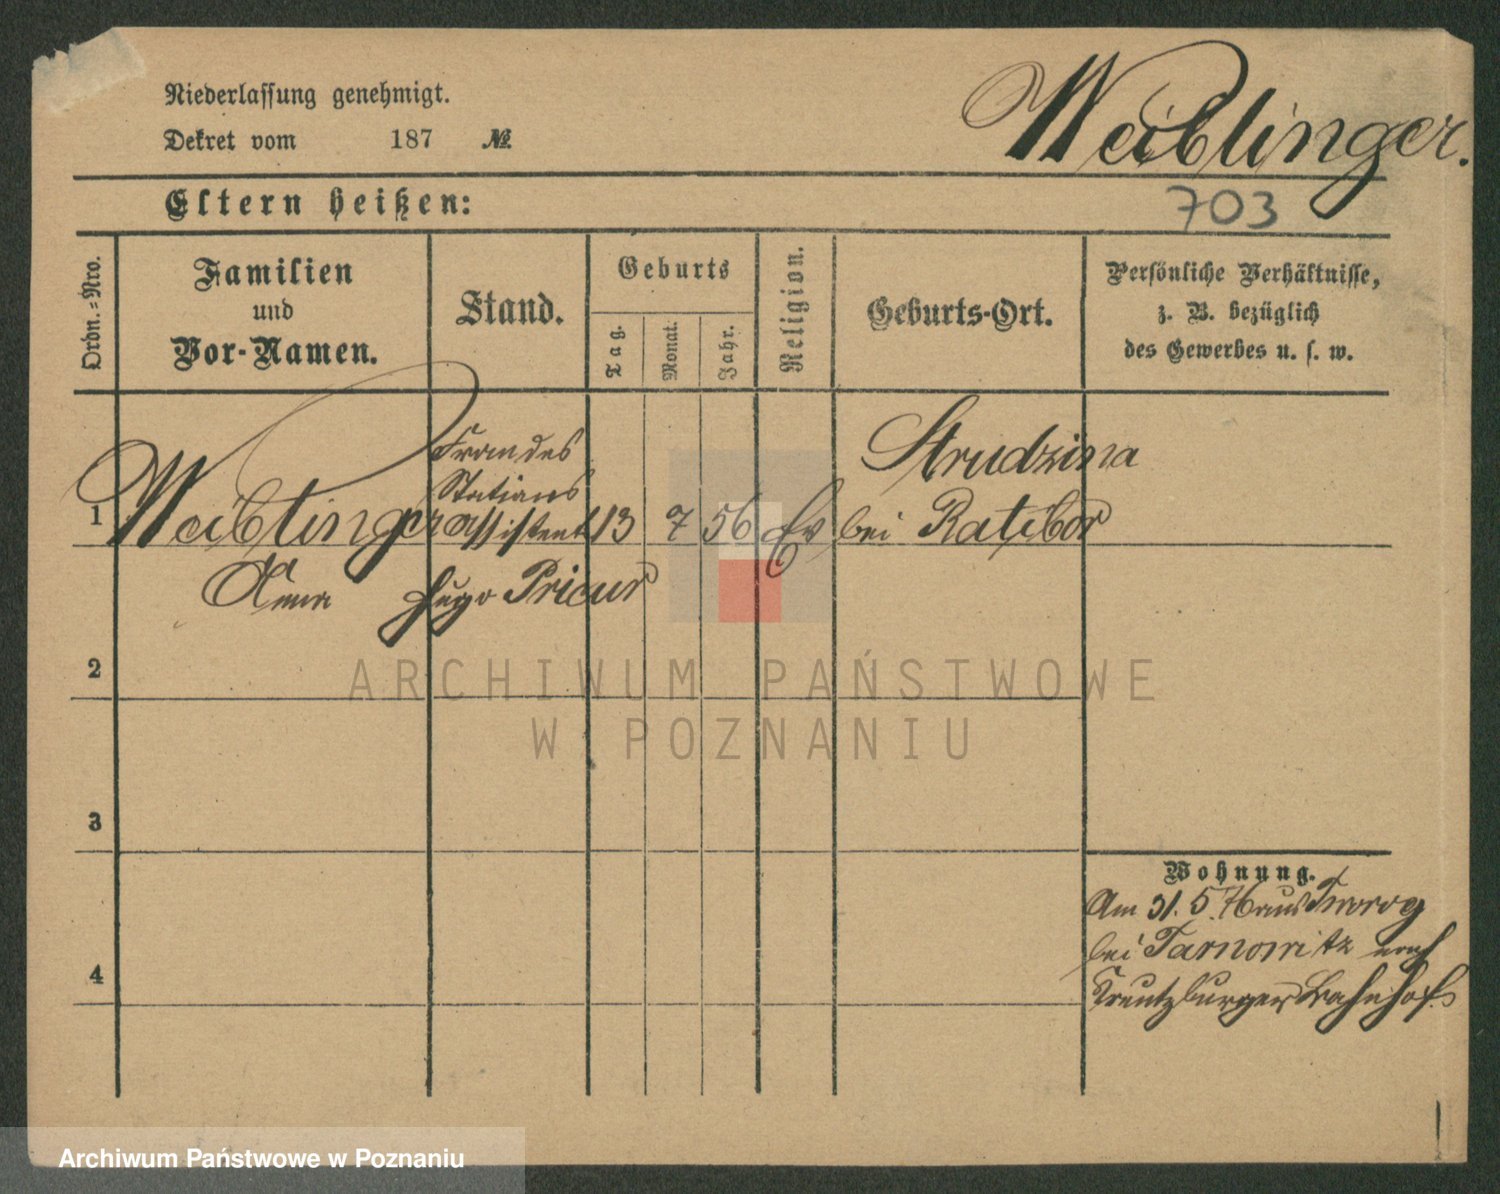 Niederlassung genehmigt.
Dekret vom 187 №
Weiblinger.
Eltern heißen:
703
Ordn.-Nro.
Familien
und
Vor-Namen.
Stand.
Geburts
Tag.
Monat.
Jahr.
Religion.
Geburts-Ort.
Persönliche Verhältnisse,
z. B. bezüglich
des Gewerbes u. s. w.
1
Weiblinger
Frau des
Stations
assistent
13 7 56 Ev
Strudzina
bei Ratibor
Anna Hugo Pricur
2
3
4
Wohnung.
Am 31. 5. 76 aus Tworog
bei Tarnowitz nach
Kreutzburger Bahnhof.
ARCHIWUM PAŃSTWOWE
W POZNANIU
Archiwum Państwowe w Poznaniu